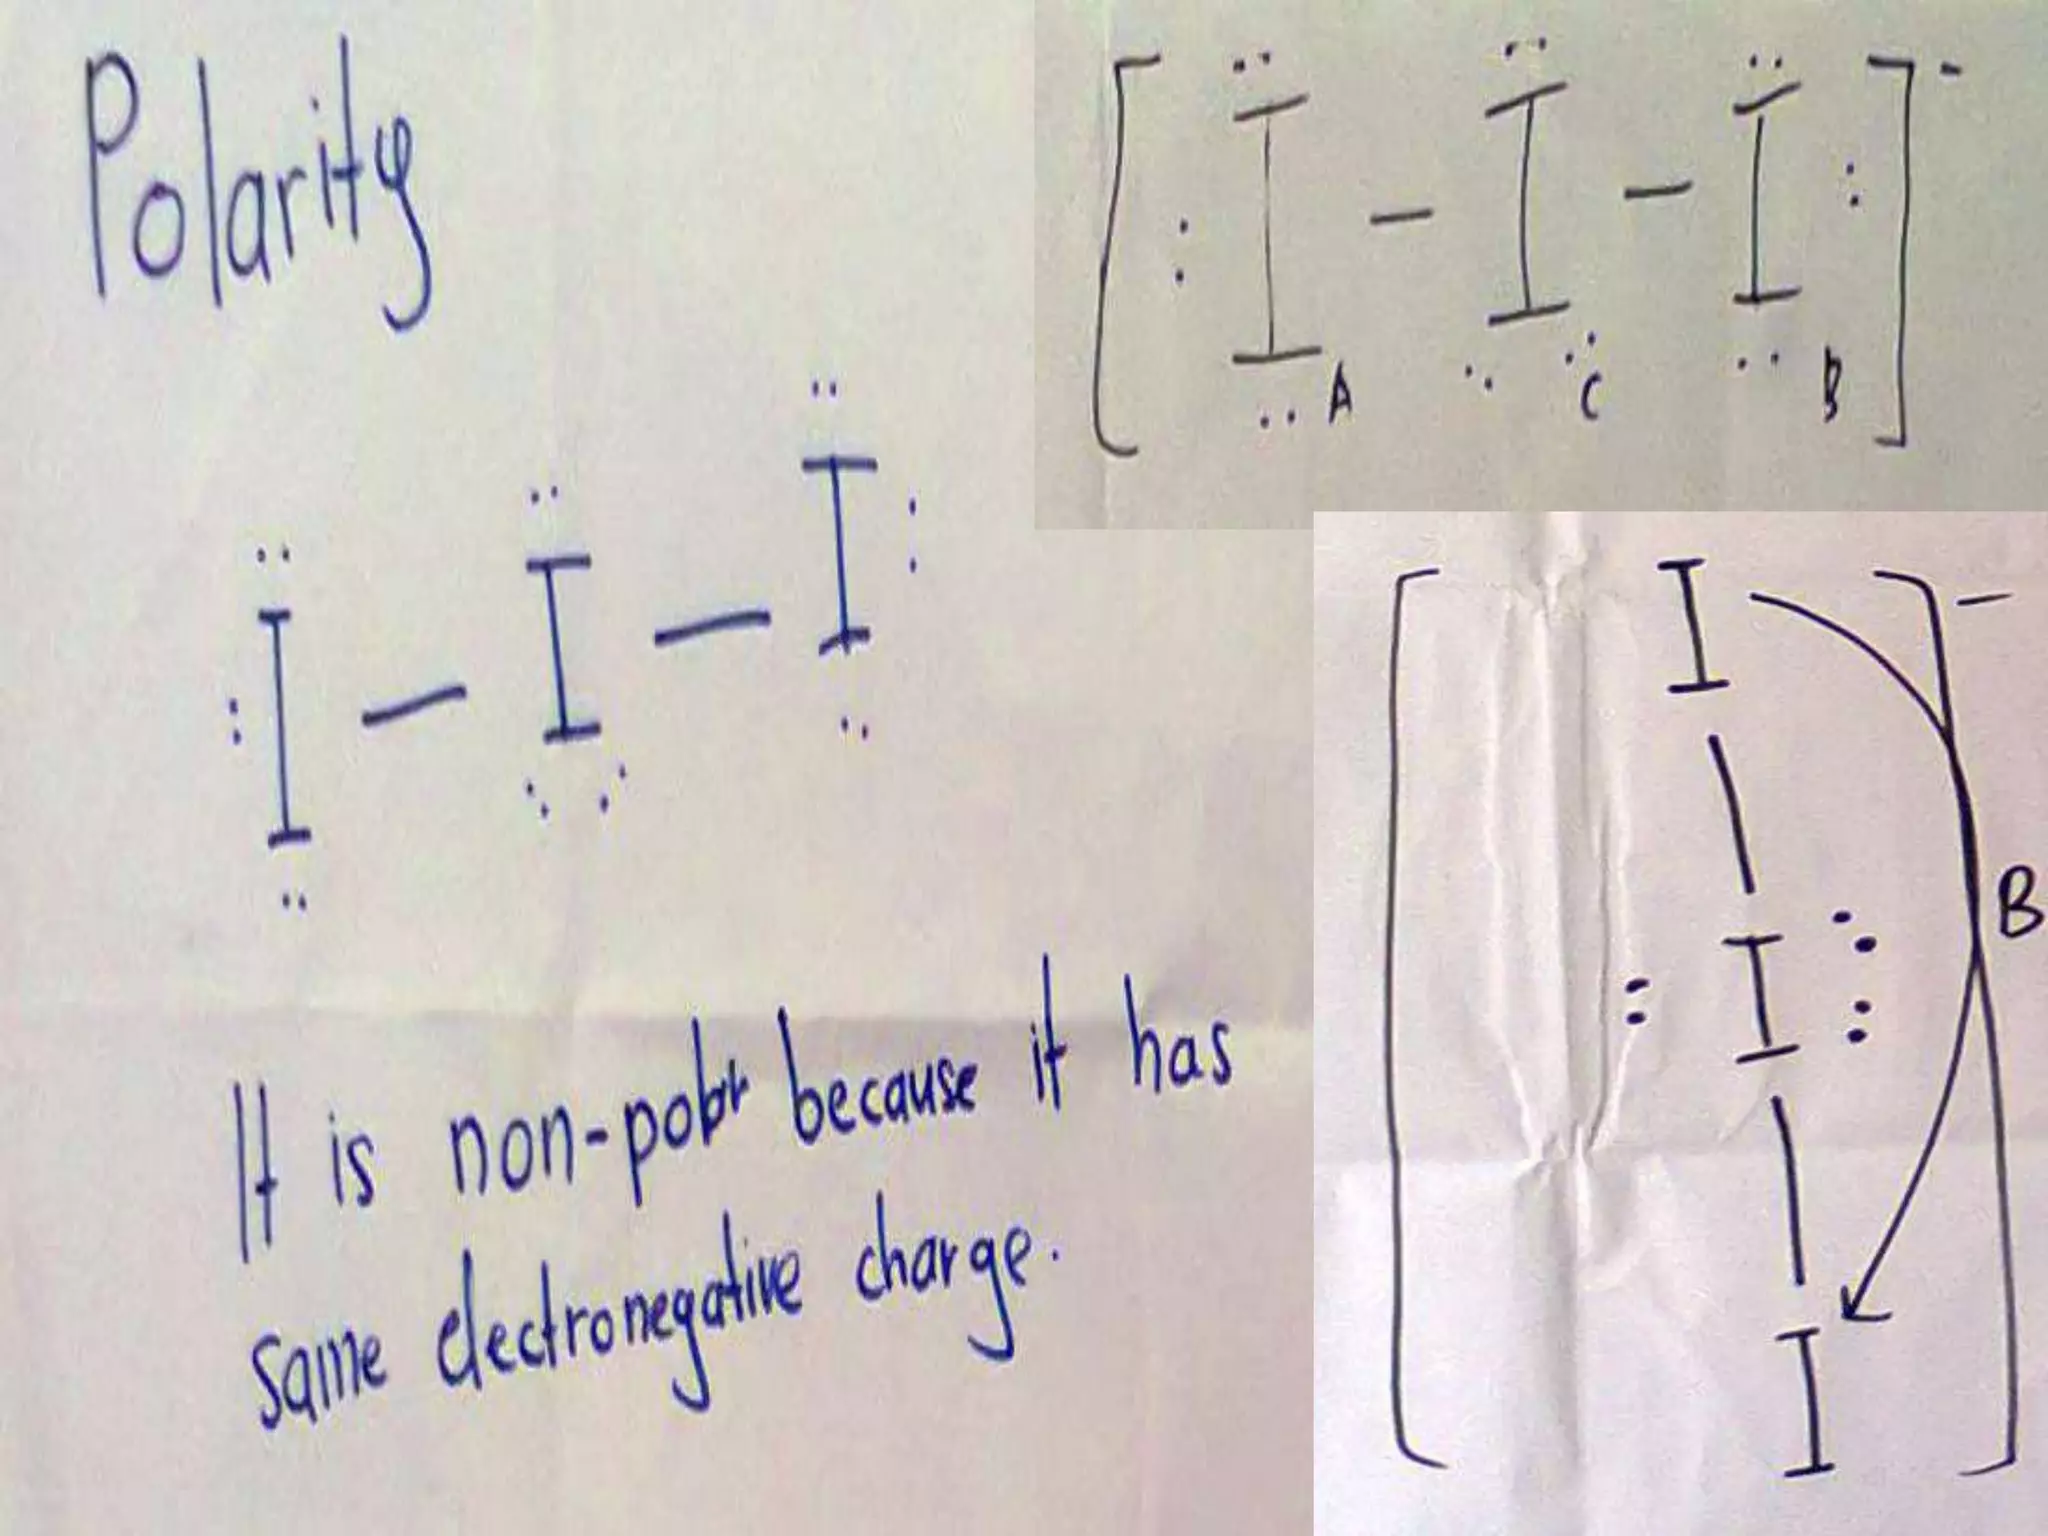 Polarity
I — I — I
It is non-polar because it has
same electronegative charge.
[ I — I — I ]⁻
A C B
[ I — I — I ]⁻
B